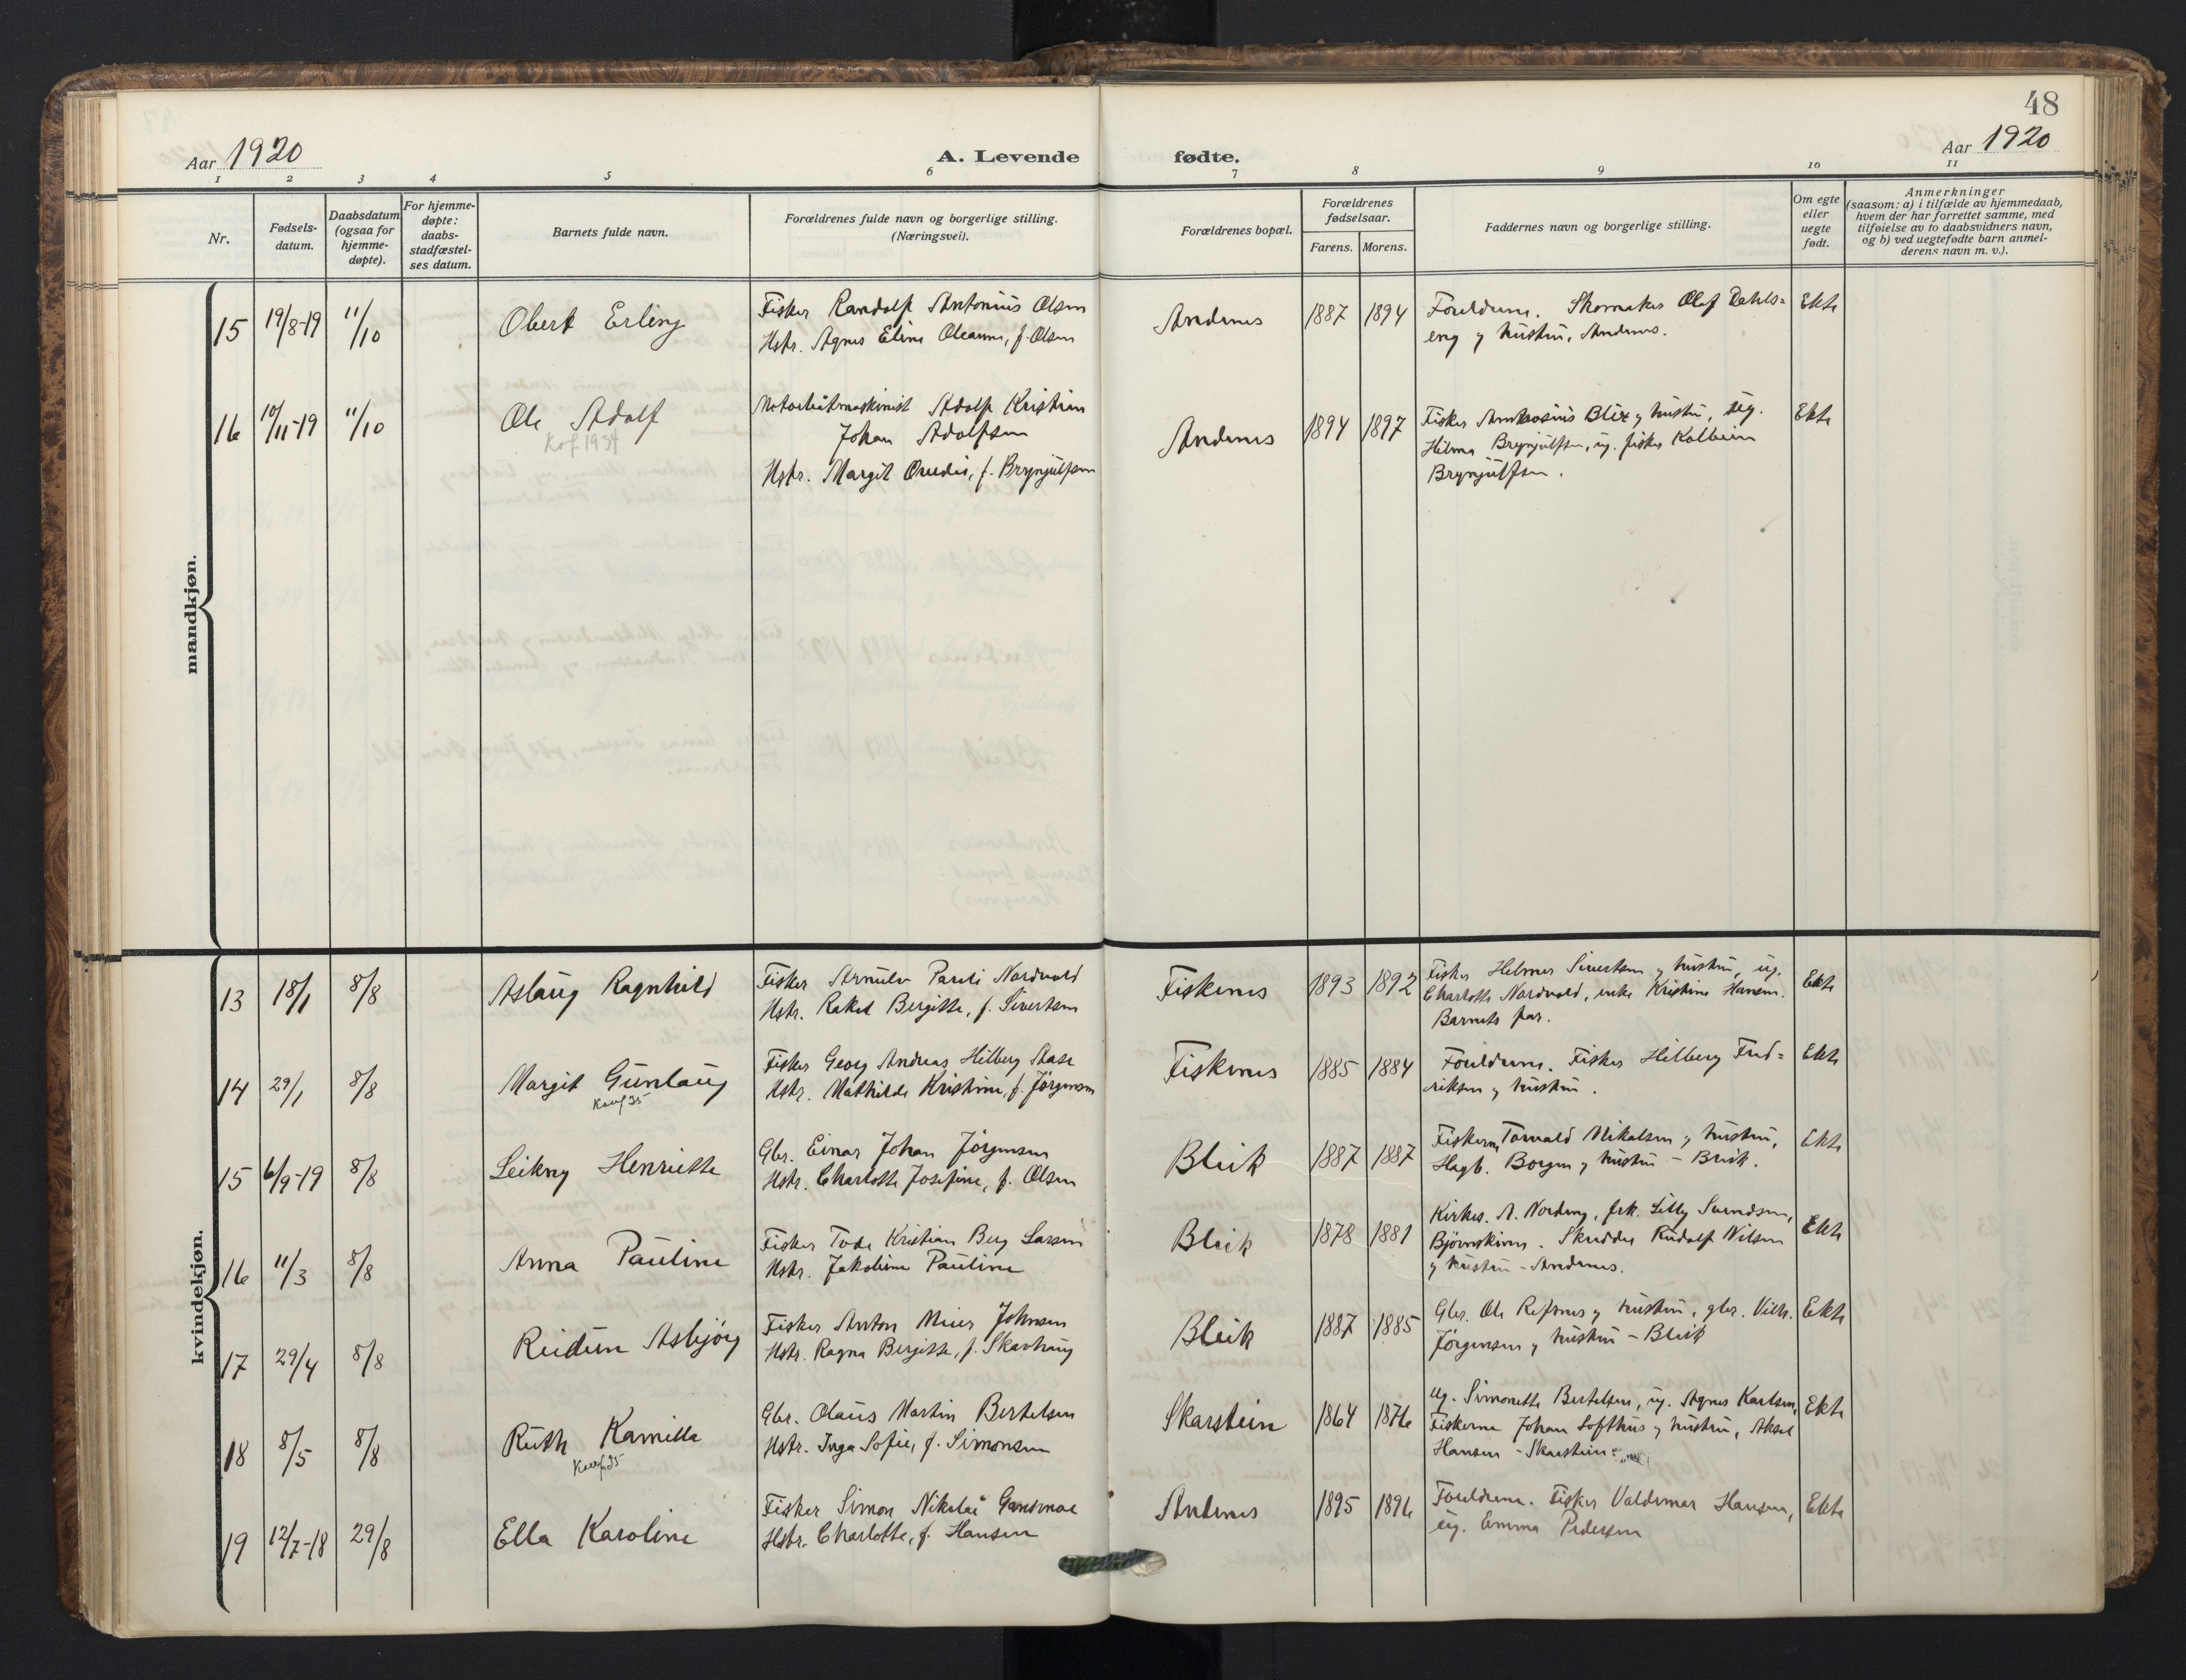 48
Aar 1920
A. Levende fødte.
Aar 1920
1 2 3 4 5 6 7 8 9 10 11
Nr.
Fødsels-
datum.
Daabsdatum
(ogsaa for
hjemme-
døpte).
For hjemme-
døpte:
daabs-
stadfæstel-
ses datum.
Barnets fulde navn.
Forældrenes fulde navn og borgerlige stilling.
(Næringsvei).
Forældrenes bopæl.
Forældrenes
fødselsaar.
Farens. Morens.
Faddernes navn og borgerlige stilling.
Om egte
eller
uegte
født.
Anmerkninger
(saasom: a) i tilfælde av hjemmedaab,
hvem der har forrettet samme, med
tilføielse av to daabsvidners navn,
og b) ved uegtefødte barn anmel-
derens navn m. v.).
mandkjøn.
15 19/8-19 11/10
Obert Erling
Fisker Randolf Antonius Olsen
Hstr. Agnes Eline Oleanna, f. Olsen
Andenes
1887 1894
Foreldrene. Skomaker Olaf Dahls=
eng og hustru, Andenes.
Ekte
16 10/11-19 11/10
Ole Adolf
Kof 1934
Motorbåtmaskinist Adolf Kristian
Johan Adolfsen
Hstr. Margit Ovedie, f. Brynjulfsen
Andenes
1894 1897
Fisker Ambrosius Blix og hustru, ug.
Hilma Brynjulfsen, ug. fisker Kolbein
Brynjulfsen.
Ekte
kvindekjøn.
13 18/1 8/8
Aslaug Ragnhild
Fisker Arnulv Pareli Nordvold
Hstr. Rakel Bergitte, f. Sivertsen
Fiskenes
1893 1892
Fisker Helmer Sivertsen og hustru, ug.
Charlotte Nordvold, enke Kristine Hansen.
Barnets far.
Ekte
14 29/1 8/8
Margit Gunlaug
Konf 35
Fisker Georg Andreas Hilberg Stave
Hstr. Mathilde Kristine, f. Jørgensen
Fiskenes
1885 1884
Foreldrene. Fisker Hilberg Fred=
riksen og hustru.
Ekte
15 6/9-19 8/8
Leikny Henriette
Gbr. Einar Johan Jørgensen
Hstr. Charlotte Josefine, f. Olsen
Bleik
1887 1887
Fiskerne Torvald Nikolsen og hustru,
Hagb. Borgen og hustru - Bleik.
Ekte
16 11/3 8/8
Anna Pauline
Fisker Tode Kristian Berg Larsen
Hstr. Jakobine Pauline
Bleik
1878 1881
Kirkes. A. Nordeng, frk. Lilly Svendsen,
Bjørnskinn. Skredder Rudolf Nilsen
og hustru - Andenes.
Ekte
17 29/4 8/8
Reidun Asbjørg
Fisker Anton Meier Johnsen
Hstr. Ragna Bergitte, f. Skavhaug
Bleik
1887 1885
Gbr. Ole Refsnes og hustru, gbr. Vilh.
Jørgensen og hustru - Bleik
Ekte
18 8/5 8/8
Ruth Kamilla
Konf 35
Gbr. Olaus Martin Bertelsen
Hstr. Inga Sofie, f. Simonsen
Skarstein
1864 1876
Ug. Simonette Bertelsen, ug. Agnes Karlsen,
Fiskerne Johan Lofthus og hustru, Aksel
Hansen - Skarstein.
Ekte
19 12/7-18 29/8
Ella Karoline
Fisker Simon Nikolai Gansmoe
Hstr. Charlotte, f. Hansen
Andenes
1895 1896
Foreldrene. Fisker Valdemar Hansen,
ug. Emma Pedersen
Ekte